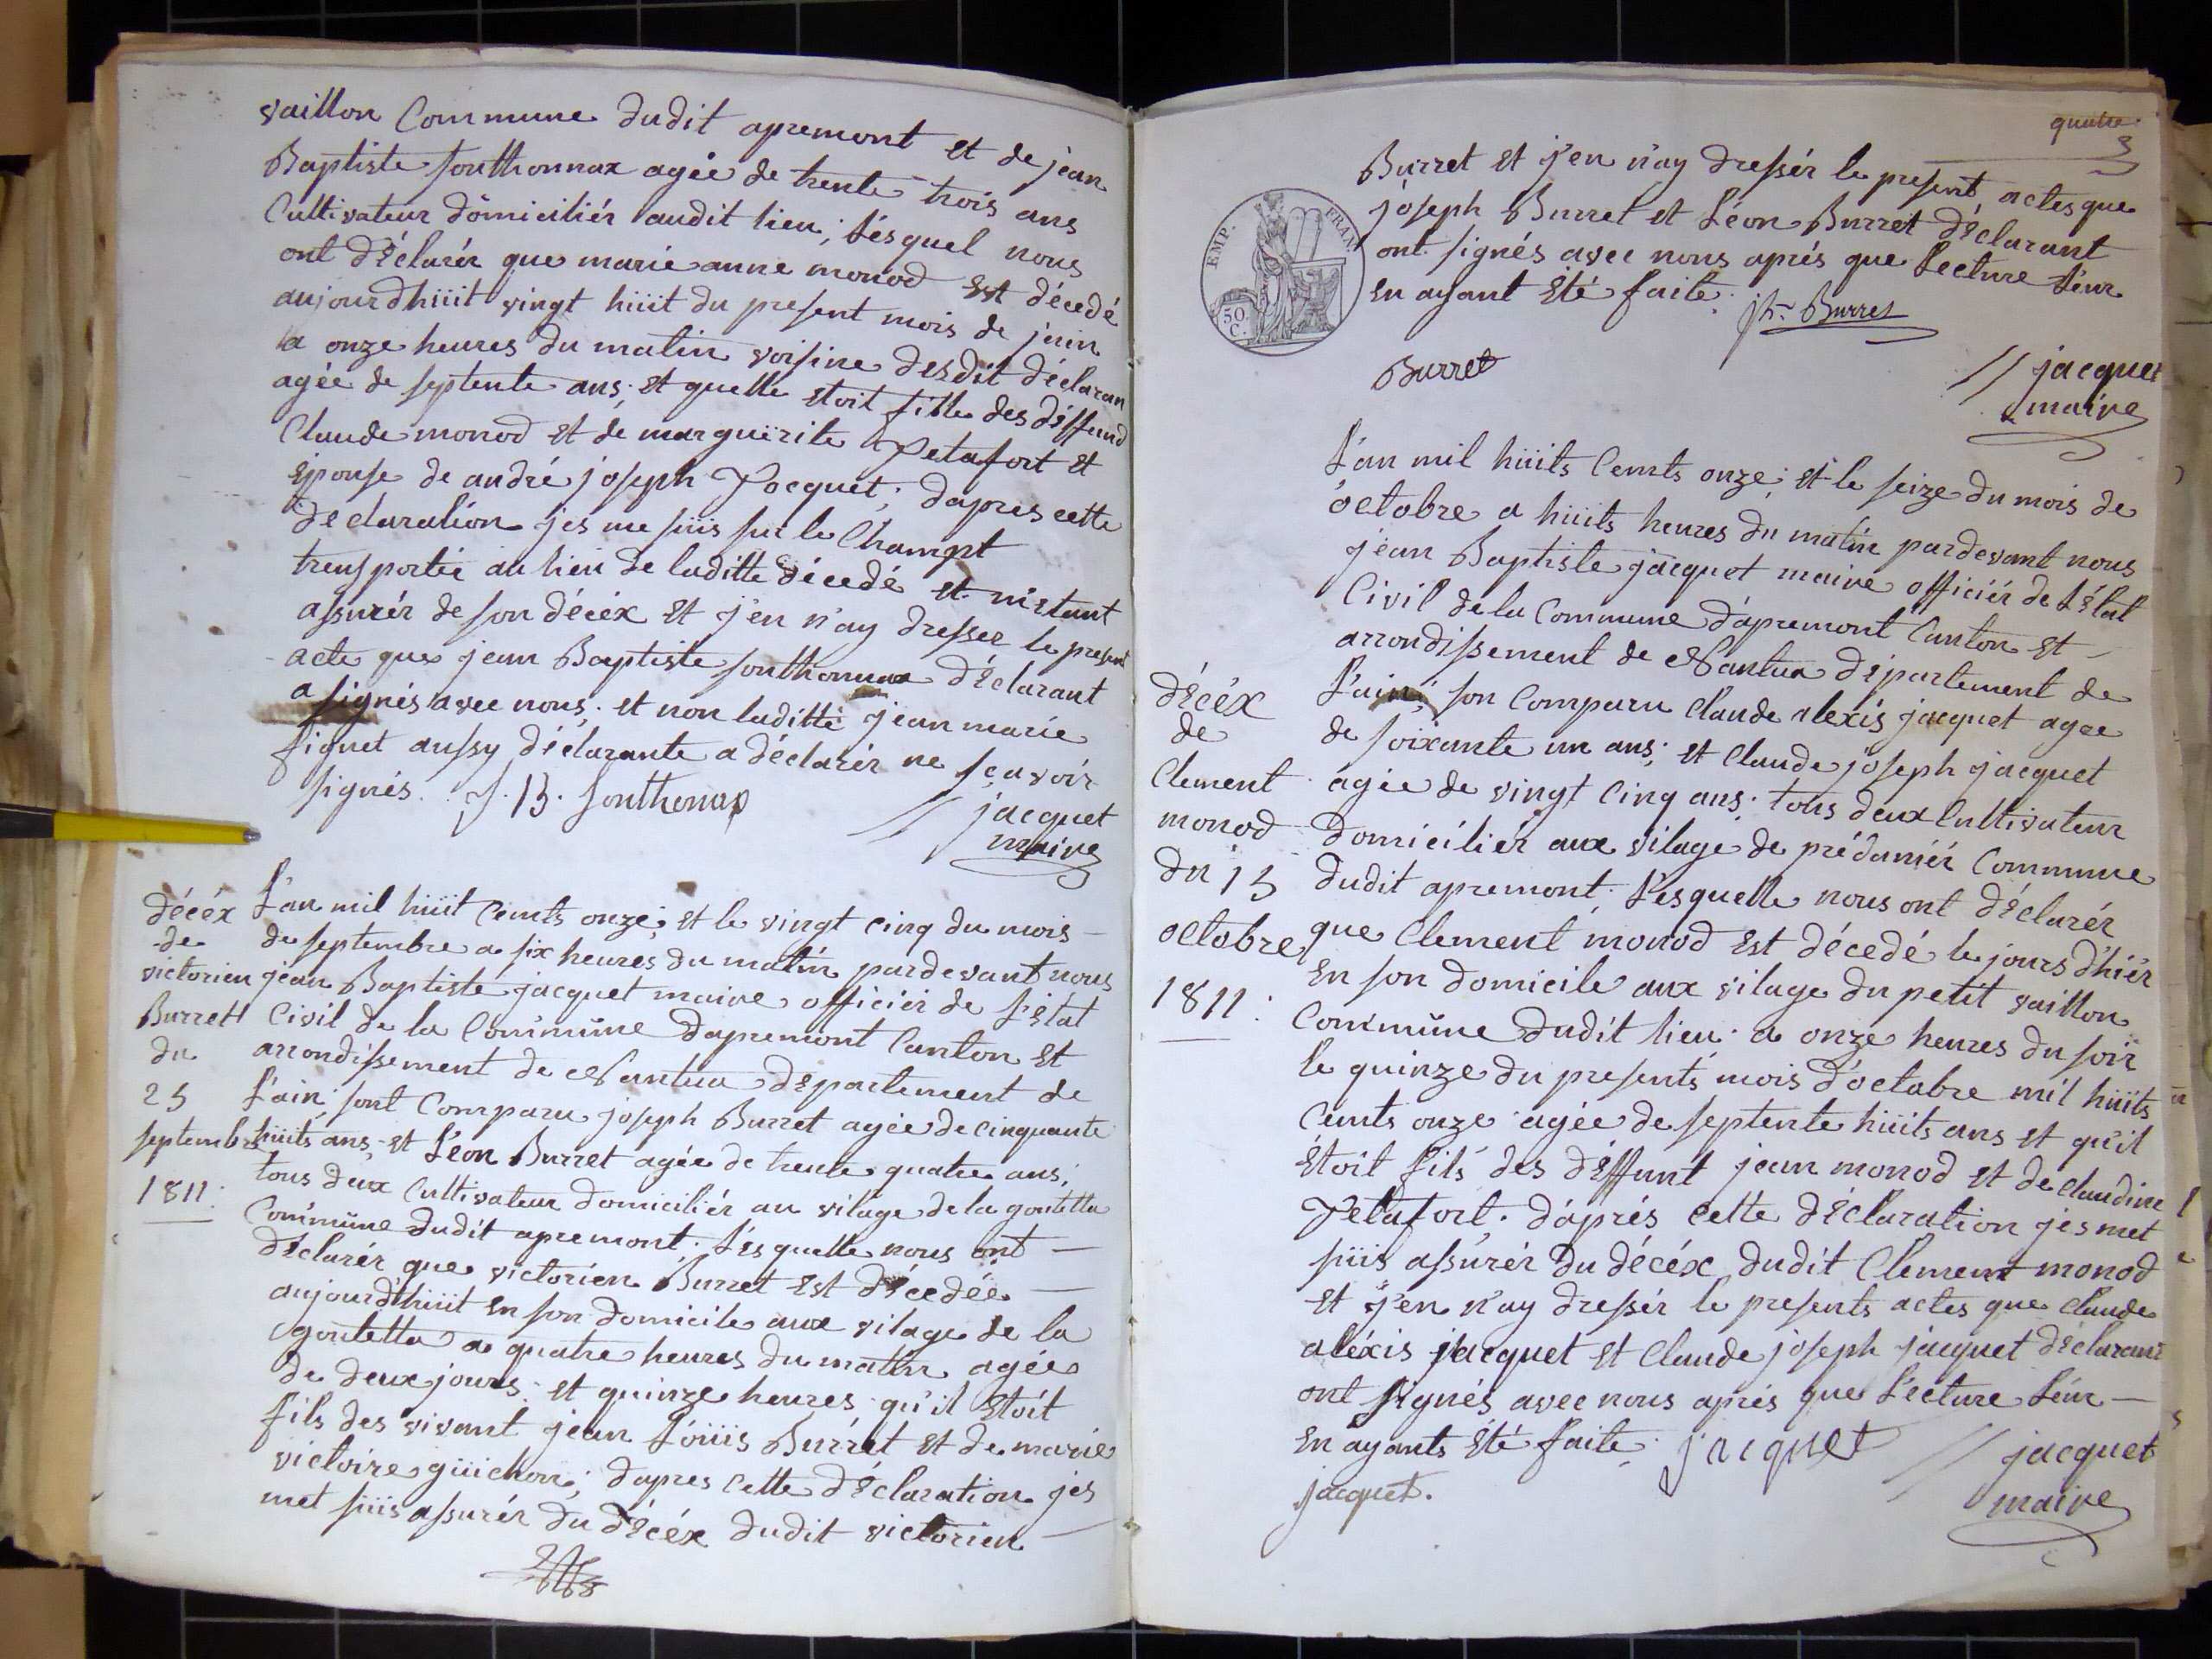 vaillon Commune dudit apremont et de jean
Baptiste southonnax agée de trente trois ans
Cultivateur domiciliér audit lieu, Lésquel nous
ont déclarér que marie anne monod est décedé
aujourdhüit vingt hüit du present mois de juin
a onze heures du matin voisine desdit déclaran
agée de septente ans, et quelle etoit fille des déffund
Claude monod et de marguerite Petafort et
Epouse de andré joseph Jocquet; dapres cette
déclaration jes me süis sur le Champt
trensportée au lieu de laditte décedé et m'etant
assurér de son décéx et j'en n'ay dresser le present
acte que jean Baptiste southonnax déclarant
a signés avec nous, et non laditte jean marie
figuet aussy déclarante a déclarér ne sçavoir
signés. J. B. Southonax
jacquet
maire
décéx
de
victorien
Burrett
du
25
septembre
1811.
L'an mil hüit Cents onze, et le vingt cinq du mois
de septembre a six heures du matin pardevant nous
jean Baptiste jacquet maire officiér de L'état
Civil de la Commune dapremont Canton et
arrondissement de Nantua département de
L'ain, sont Comparu joseph Burret agée de cinquante
hüits ans, et Léon Burret agée de trente quatre ans,
tous deux Cultivateur domiciliér au vilage de la goutetta
Commune dudit apremont. Lésquelle nous ont
déclarér que victorien Burret est décedée
aujourd'hüit en son domicile aux vilage de la
goutetta a quatre heures du matin agée
de deux jours, et quinze heures qu'il étoit
fils des vivant jean Loüis Burret et de marie
victoire güichon; dapres cette déclaration jes
met süis assurér du décéx dudit victorien
quatre
Burret et j'en n'ay dressér le present actes que
joseph Burret et Léon Burret déclarant
ont signés avec nous aprés que Lecture Léur
en ayant été faite. jh. Burret
EMP. FRAN.
50.
C.
Burret
jacquet
maire
L'an mil hüits Cents onze; et le seize du mois de
octobre a hüits heures du matin pardevant nous
jean Baptiste jacquet maire officiér de L'état
Civil de la Commune d'apremont Canton et
arrondissement de Nantua département de
L'ain; son Comparu Claude alexis jacquet agee
de soixante un ans; et Claude joseph jacquet
agée de vingt Cinq ans. tous deux Cultivateur
domiciliér aux vilage de prédaniér Commune
dudit apremont, Lesquelle nous ont déclarér
que Clement monod est décedé le jours d'hiér
En son domicile aux vilage du petit vaillon
Commune dudit lieu. a onze heures du soir
le quinze du presents mois d'octobre mil hüits
Cents onze agée de septente hüits ans et qu'il
étoit fils des déffunt jean monod et de claudine
Petafort. d'aprés cette déclaration jes met
süis assurér du décéx dudit Clement monod
et j'en n'ay dressér le presents actes que Claude
aléxis jacquet et Claude joseph jacquet déclarant
ont signés avec nous aprés que Lecture Léur
En ayants été faite. jacquet
jacquet
maire
jacquet.
décéx
de
Clement
monod
du 15
octobre
1811.